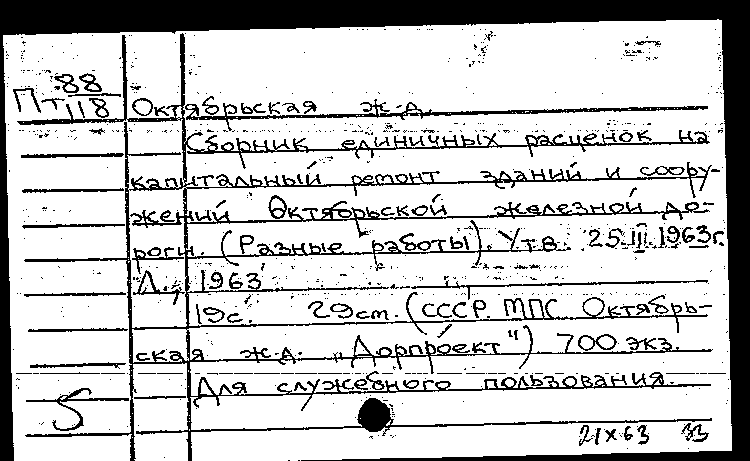 88
Пт 118 Октябрьская ж.д.
Сборник единичных расценок на
капитальный ремонт зданий и соору-
жений Октябрьской железной до-
роги. (Разные работы). Утв. 25.III.1963г.
Л., 1963
19с. 29см. (СССР МПС Октябрь-
ская ж.д. „Дорпроект") 700 экз.
Для служебного пользования.
5
21х63